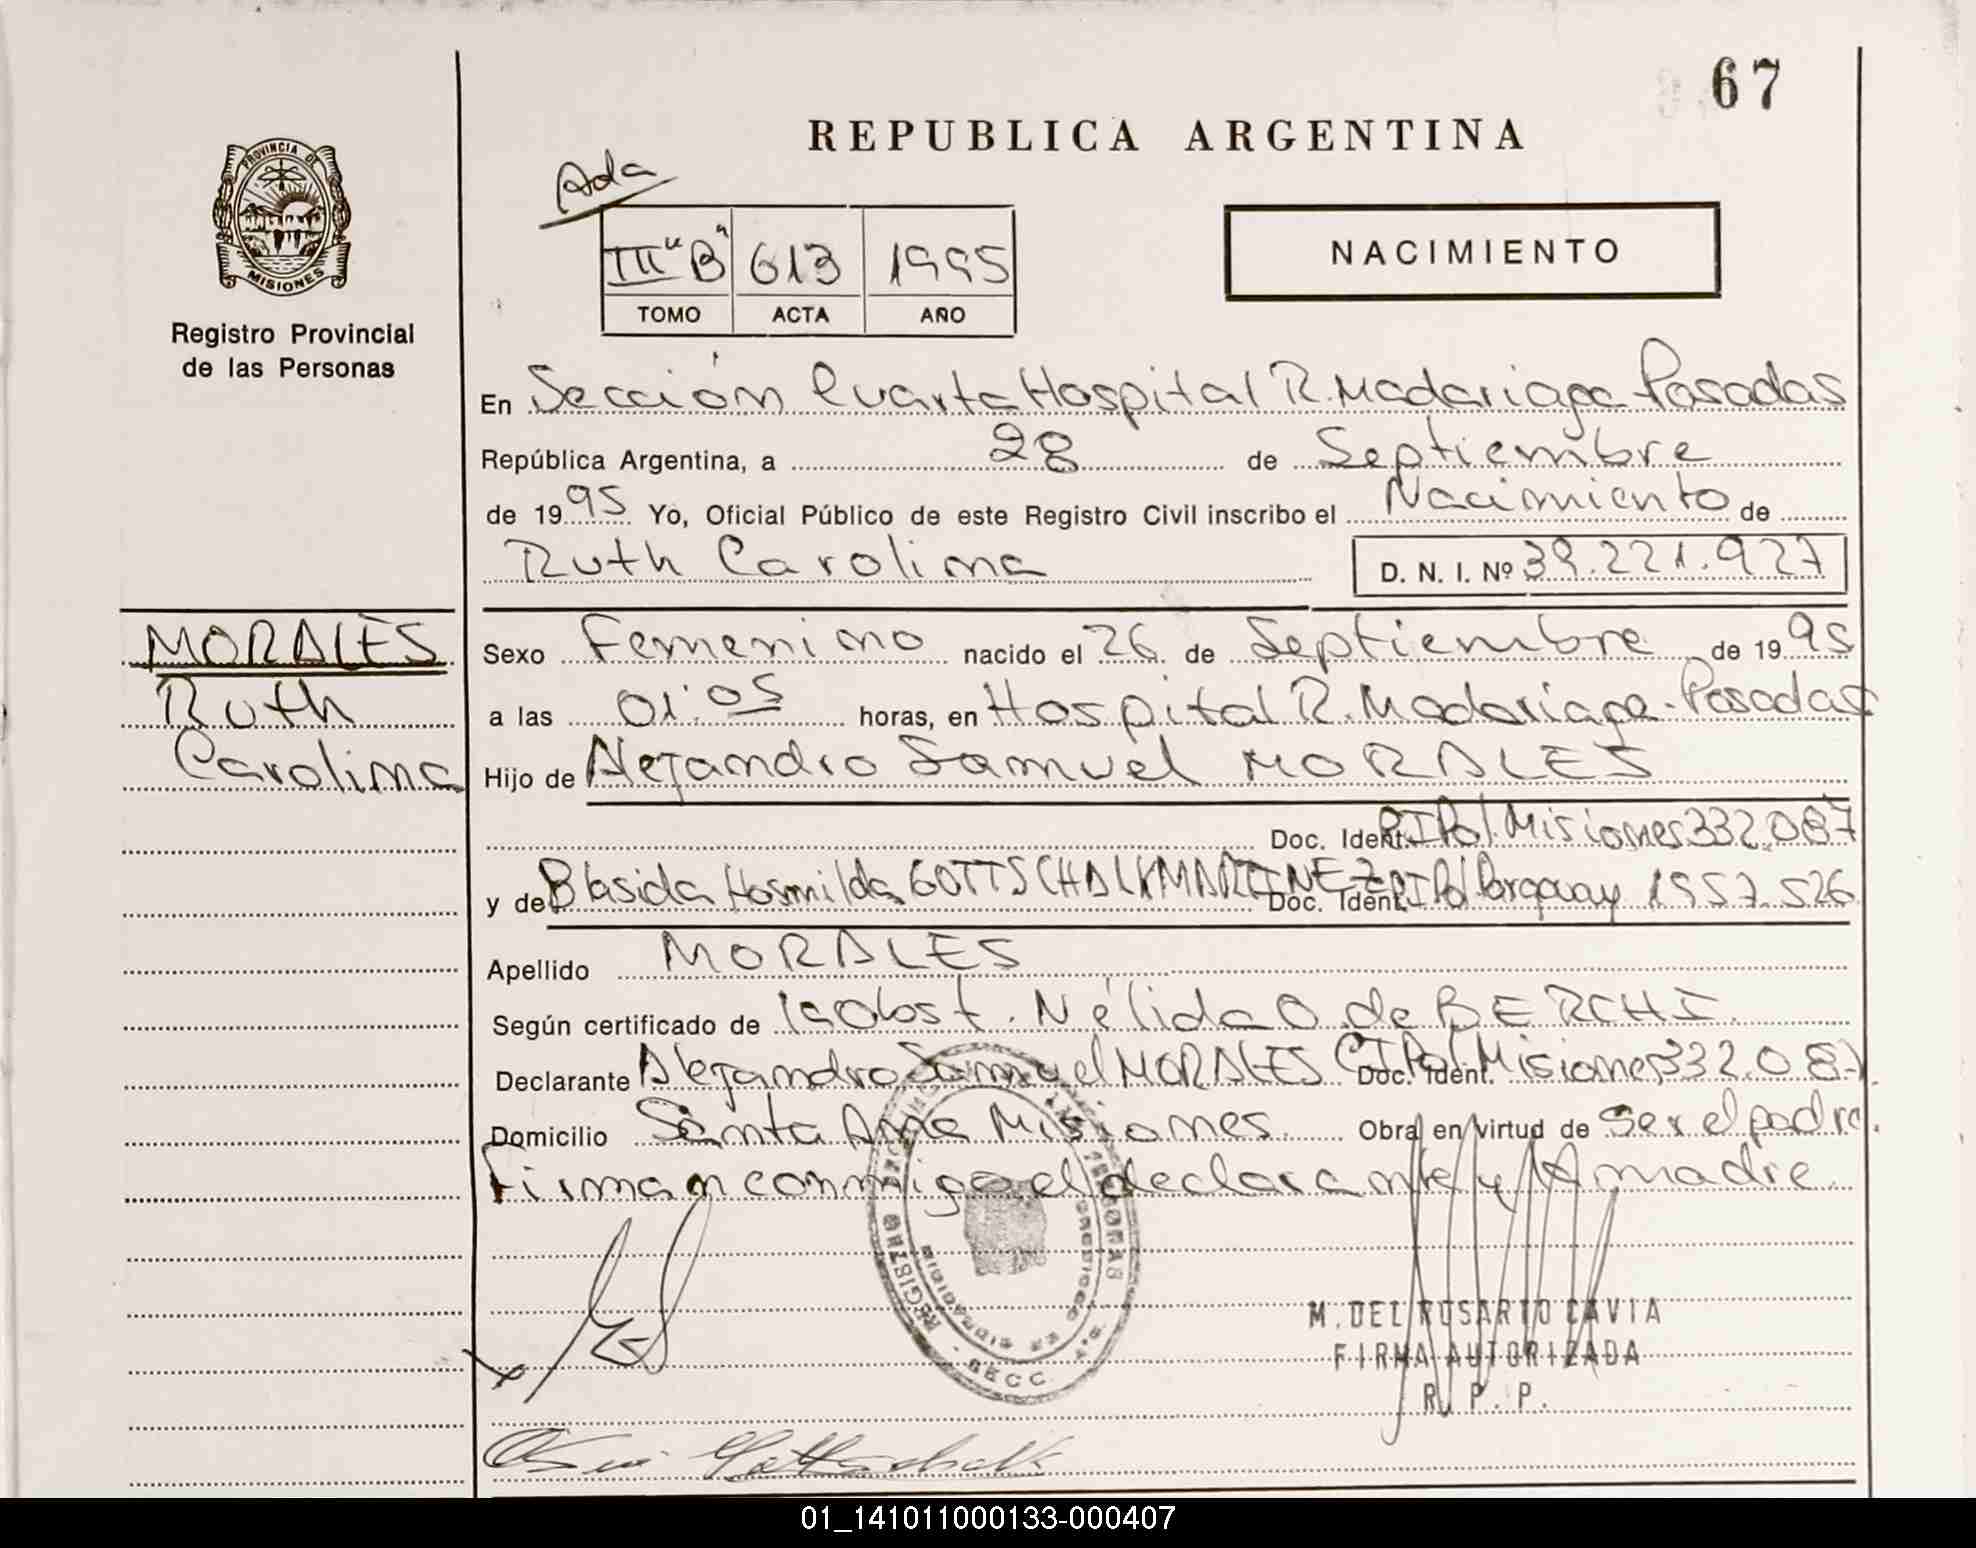 67
REPUBLICA ARGENTINA
PROVINCIA DE
MISIONES
Registro Provincial
de las Personas
Ada
III "B" 613 1995
TOMO ACTA AÑO
NACIMIENTO
En Sección Cuarta Hospital R. Madariaga - Posadas
República Argentina, a 28 de Septiembre
de 1995 Yo, Oficial Público de este Registro Civil inscribo el Nacimiento de
Ruth Carolina D. N. I. Nº 39.221.927
MORALES
Ruth
Carolina
Sexo Femenino nacido el 26 de Septiembre de 1995
a las 01:05 horas, en Hospital R. Madariaga - Posadas
Hijo de Alejandro Samuel MORALES
Doc. Ident. CI Pol. Misiones 332.087
y de Blasida Hosmilda GOTTSCHALK MARTINEZ Doc. Ident. CI Pol Paraguay 1957.526
Apellido MORALES
Según certificado de la Obst. Nélida O de BERCHI
Declarante Alejandro Samuel MORALES Doc. Ident. CI Pol. Misiones 332.087
Domicilio Santa Ana Misiones Obra en virtud de ser el padre.
Firman conmigo el declarante y la madre
M. DEL ROSARIO CAVIA
FIRMA AUTORIZADA
R. P. P.
Gottschalk
01_141011000133-000407